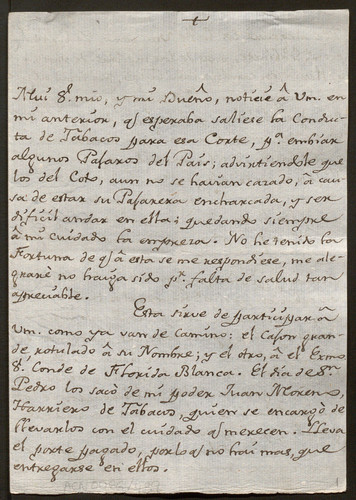 +
Mui Sr. mio, y mi Dueño, noticié â Vm. en
mi anterior, qe esperaba saliese la Conduc
ta de Tabacos para esa Corte, pa. embiar
algunos Pajaros del País; advirtiendole qe
los del Coto, aun no se havian cazado, â cau
sa de estar su Pajarera encharcada, y ser
dificil andar en ella; quedando siempre
â mi cuidado la empreza. No he tenido la
Fortuna de qe â esta se me respondiese, me ale
graré no haiga sido pr. falta de salud tan
apreciable.
Esta sirve de participar â
Vm. como ya van de camino: el Cajon gran
de, rotulado â su Nombre; y el otro, â el Exmo
Sr. Conde de Florida Blanca. El dia de Sn.
Pedro los sacò de mi poder Juan Moreno,
Harriero de Tabacos, quien se encargò de
llevarlos con el cuidado qe merecen. Lleva
el porte pagado, por lo qe no hai mas, que
entregarse en ellos.
1